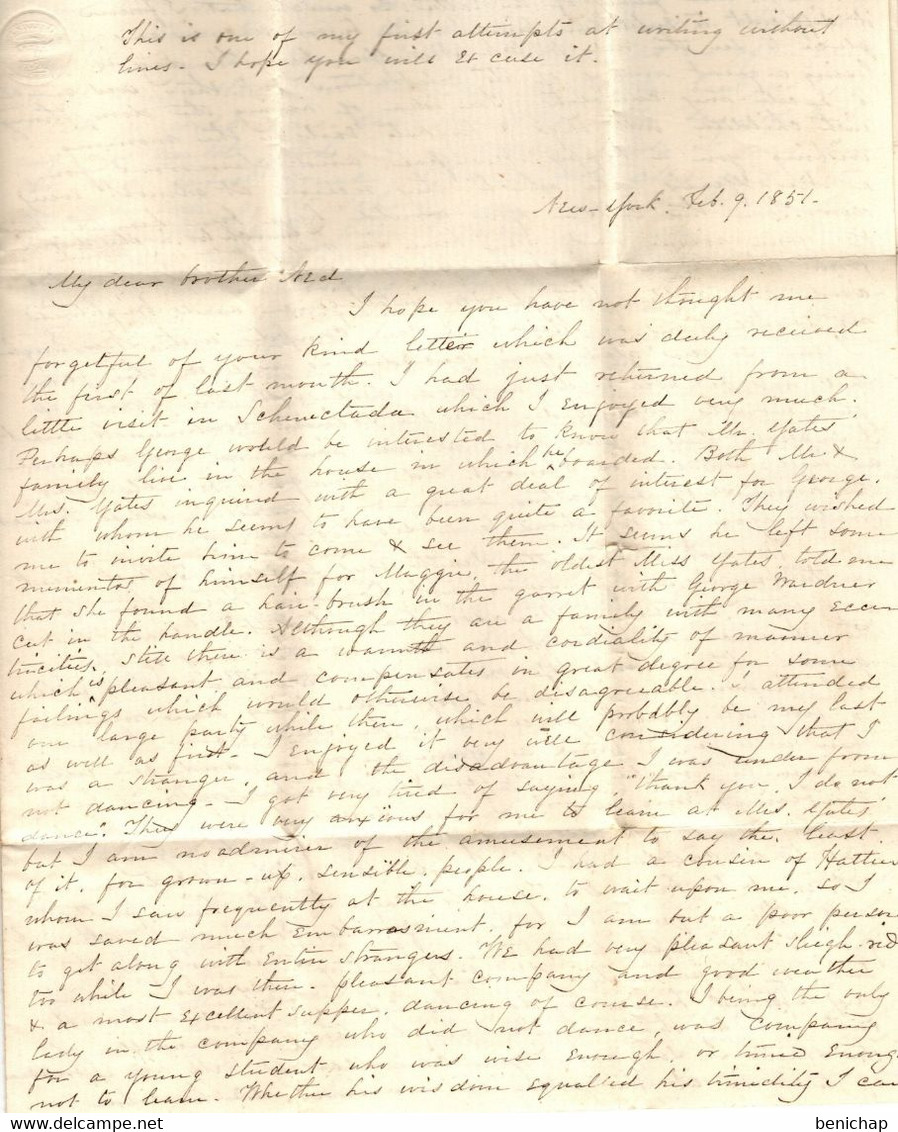 This is one of my first attempts at writing without
lines. I hope you will Excuse it.
New-York. Feb. 9. 1851.
My dear brother Ned
I hope you have not thought me
forgetful of your kind letter which was duly received
the first of last month. I had just returned from a
little visit in Schenectada which I Enjoyed very much.
Perhaps George would be interested to know that Mr. Yates'
family live in the house in which he boarded. Both Mr. &
Mrs. Yates inquired with a great deal of interest for George.
with whom he seems to have been quite a favorite. They wished
me to invite him to come & see them. It seems he left some
mementos of himself for Maggie, the oldest Miss Yates, told me
that she found a hair-brush in the garret with George Wardner
cut in the handle. Although they are a family with many Eccen
tricities, still there is a warmth and cordiality of manner
which is pleasant and compensates in great degree for some
failings which would otherwise be disagreeable. I attended
one large party while there, which will probably be my last
as well as first. I Enjoyed it very well considering that I
was a stranger, and the disadvantage I was under from
not dancing. I got very tired of saying, "thank you, I do not
dance". They were very anxious for me to learn at Mrs. Yates'
but I am no admirer of the amusement to say the least
of it, for grown-up, sensible, people. I had a cousin of Hatties
whom I saw frequently at the house, to wait upon me, so I
was saved much Embarrasment, for I am but a poor person
to get along with Entire strangers. We had very pleasant sleigh-rid
too while I was there. pleasant company and good weather
& a most Excellent supper, dancing of course. I being the only
lady in the company who did not dance, was company
for a young student who was wise Enough, or timid Enough
not to learn. Whether his wisdom Equalled his timidity I can
benichap